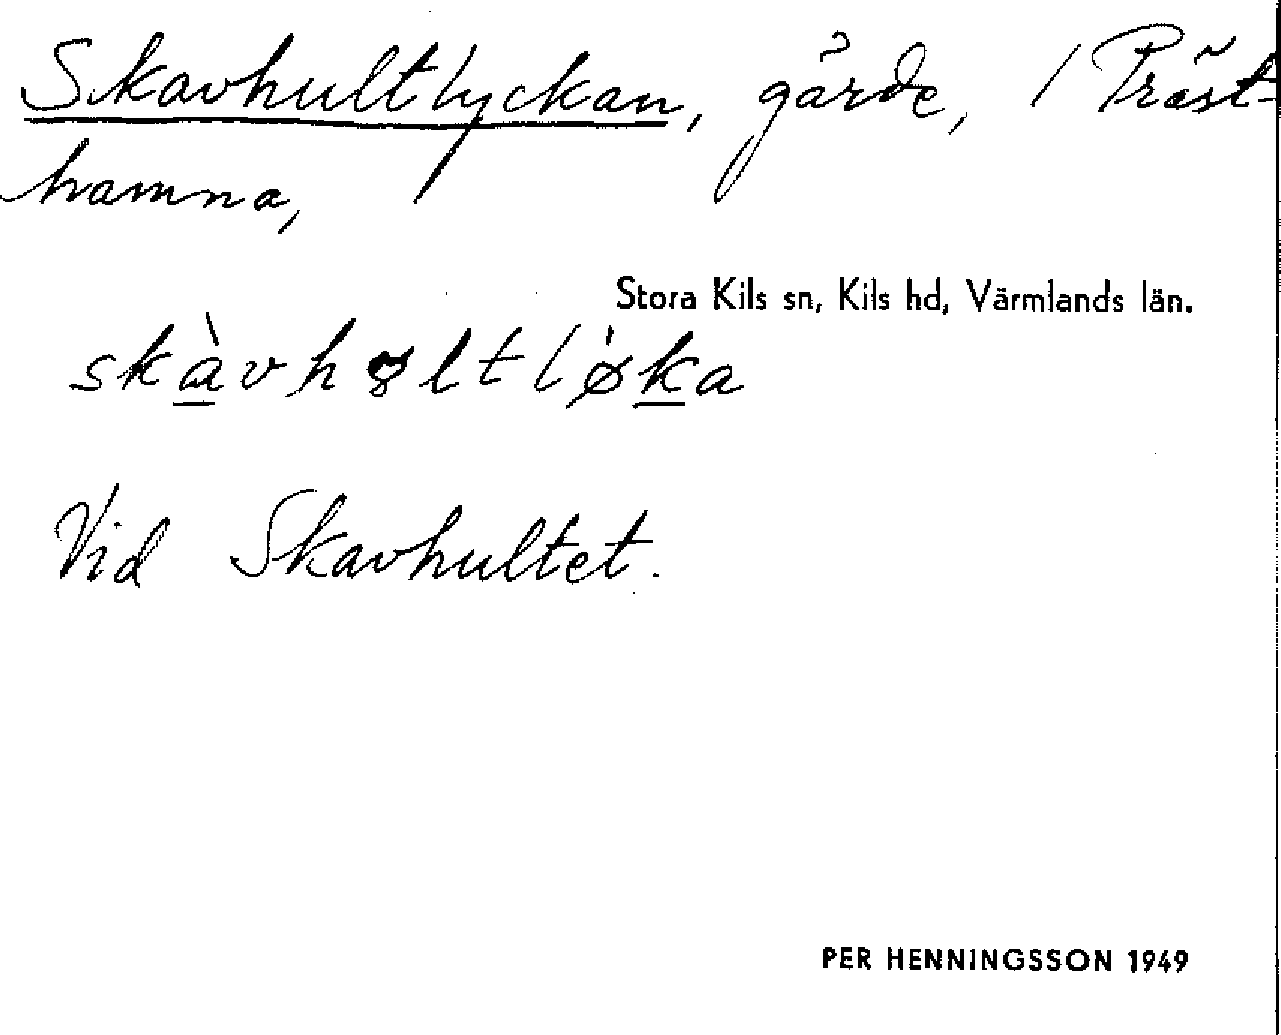 Skavhultlyckan, gärde, / Präst-
hamna,
Stora Kils sn, Kils hd, Värmlands län.
skàvhɞltlø̀ka
Vid Skavhultet.
PER HENNINGSSON 1949